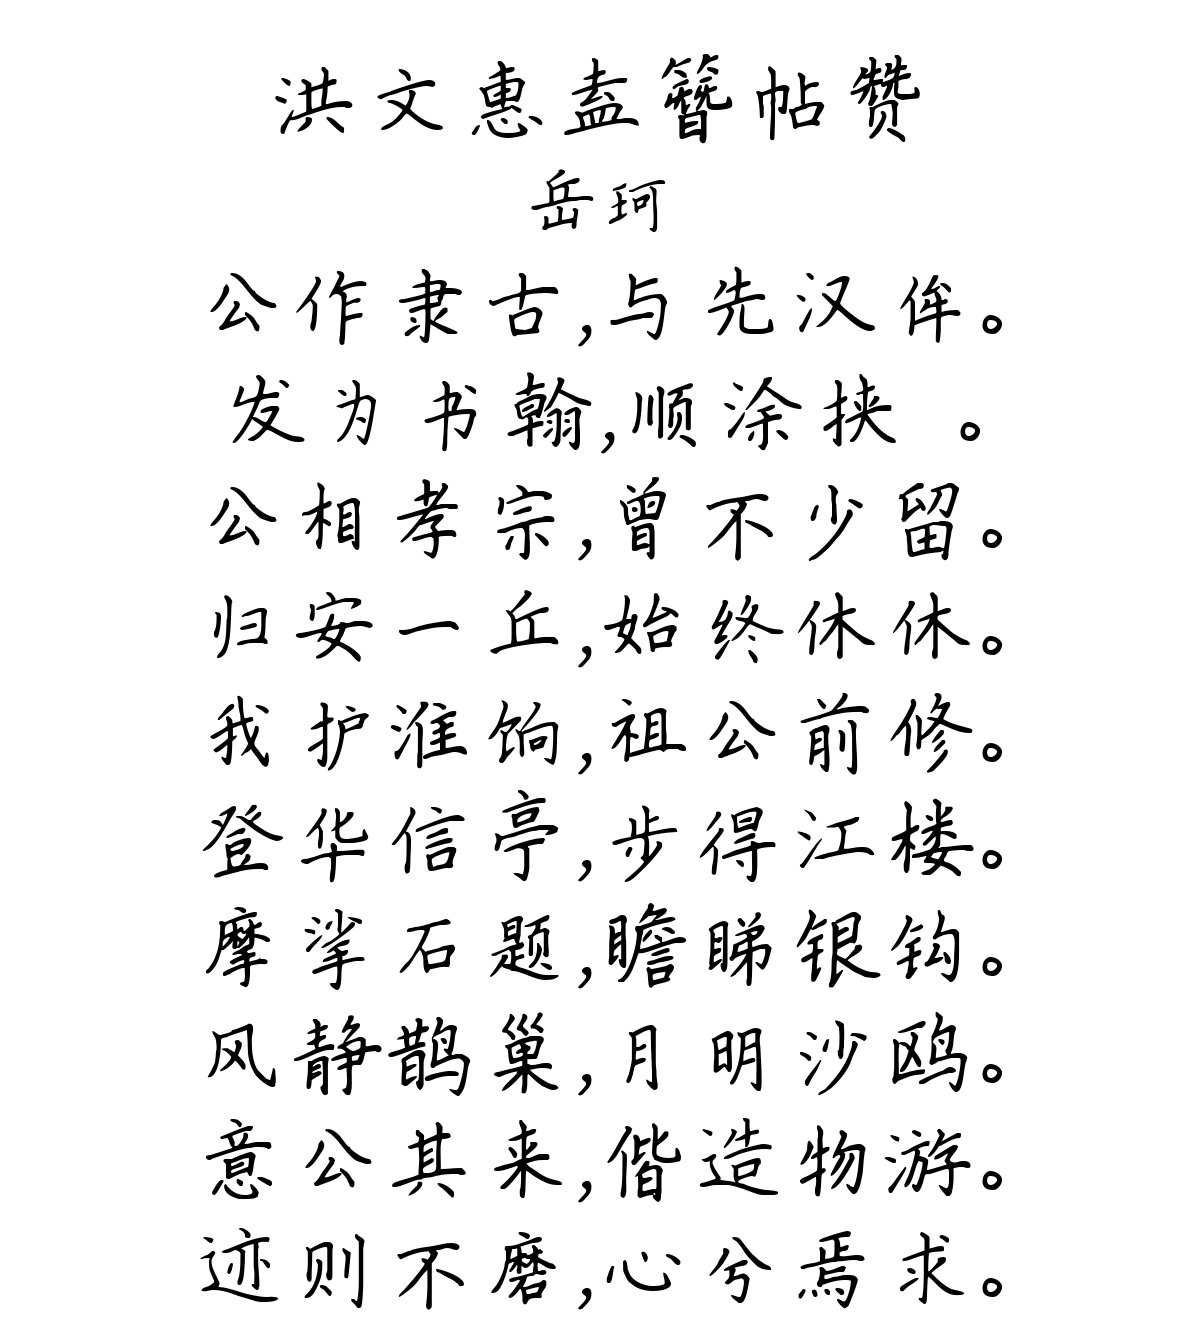 洪文惠盍簪帖赞
岳珂
公作隶古,与先汉侔。
发为书翰,顺涂挟 。
公相孝宗,曾不少留。
归安一丘,始终休休。
我护淮饷,祖公前修。
登华信亭,步得江楼。
摩挲石题,瞻睇银钩。
风静鹊巢,月明沙鸥。
意公其来,偕造物游。
迹则不磨,心兮焉求。